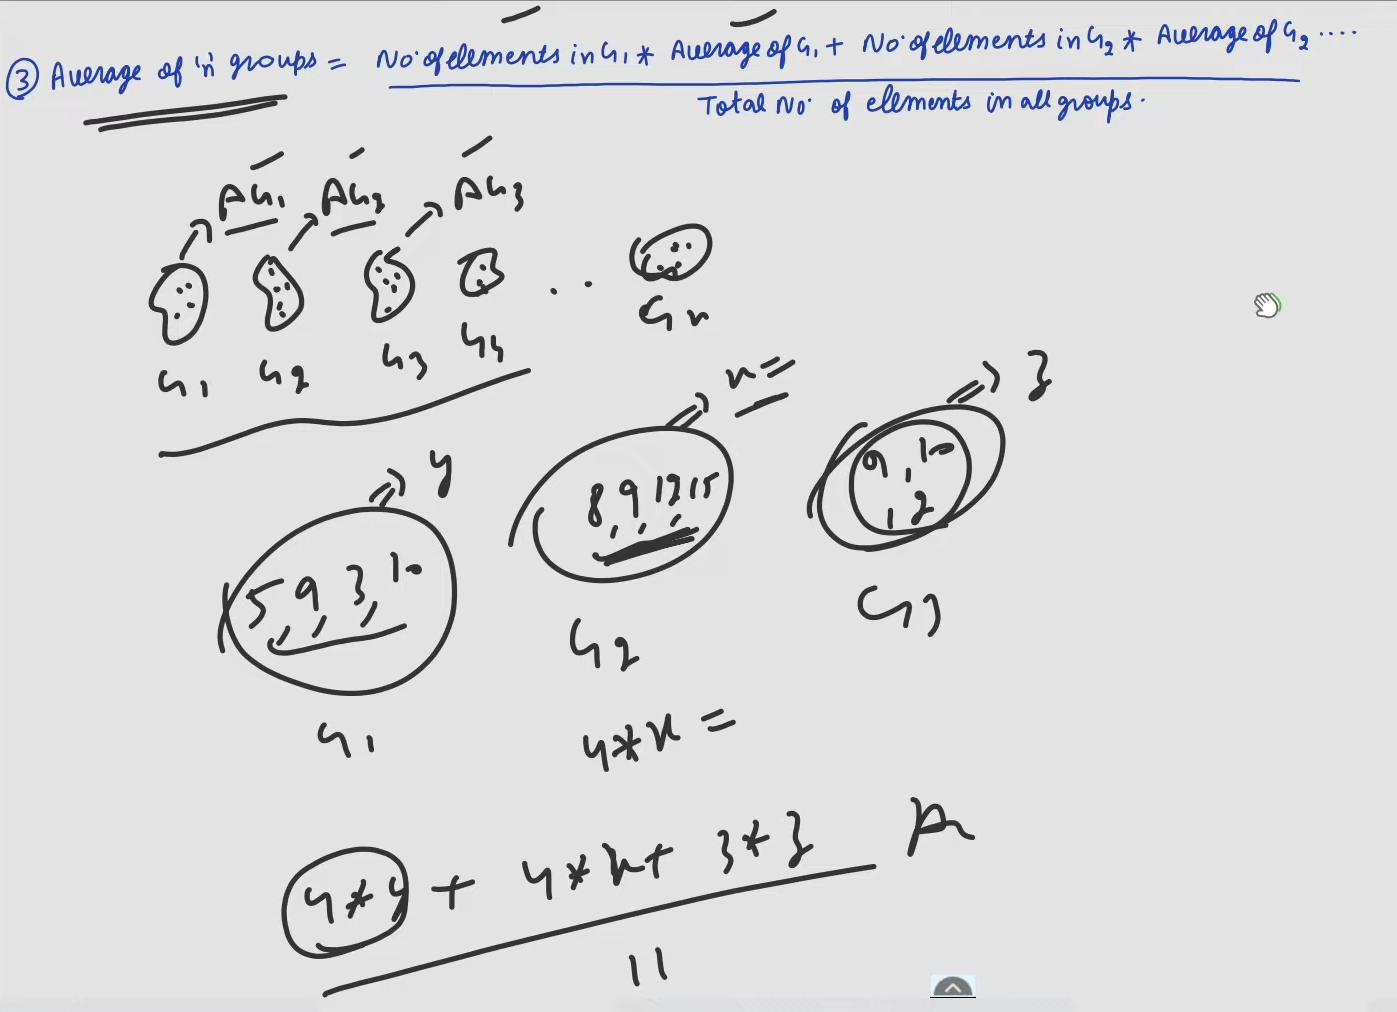 ③ Average of 'n' groups = No. of elements in G₁ * Average of G₁ + No. of elements in G₂ * Average of G₂ ....
Total No. of elements in all groups.
AG₁ AG₂ AG₃
G₁ G₂ G₃ G₄ .. Gn
y x= z
5, 9, 3, 10
8, 9, 12, 15
9, 10, 2
G₁ G₂ G₃
4*x =
4*y + 4*x + 3*z A
11